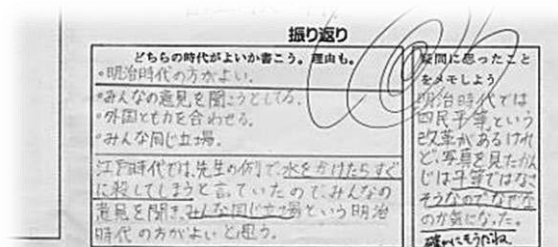 振り返り
どちらの時代がよいか書こう。理由も。
・明治時代の方がよい。
・みんなの意見を聞こうとしてる。
・外国とも力を合わせる。
・みんな同じ立場。
江戸時代では、先生の例で、水をかけたらすぐ
に殺してしまうと言っていたので、みんなの
意見を聞き、みんな同じ立場という明治
時代の方がよいと思う。
疑問に思ったこと
をメモしよう
明治時代では
四民平等という
改革があるけれ
ど、写真を見たかん
じは平等ではなさ
そうなのでなぜな
のか気になった。
確かにそうだね